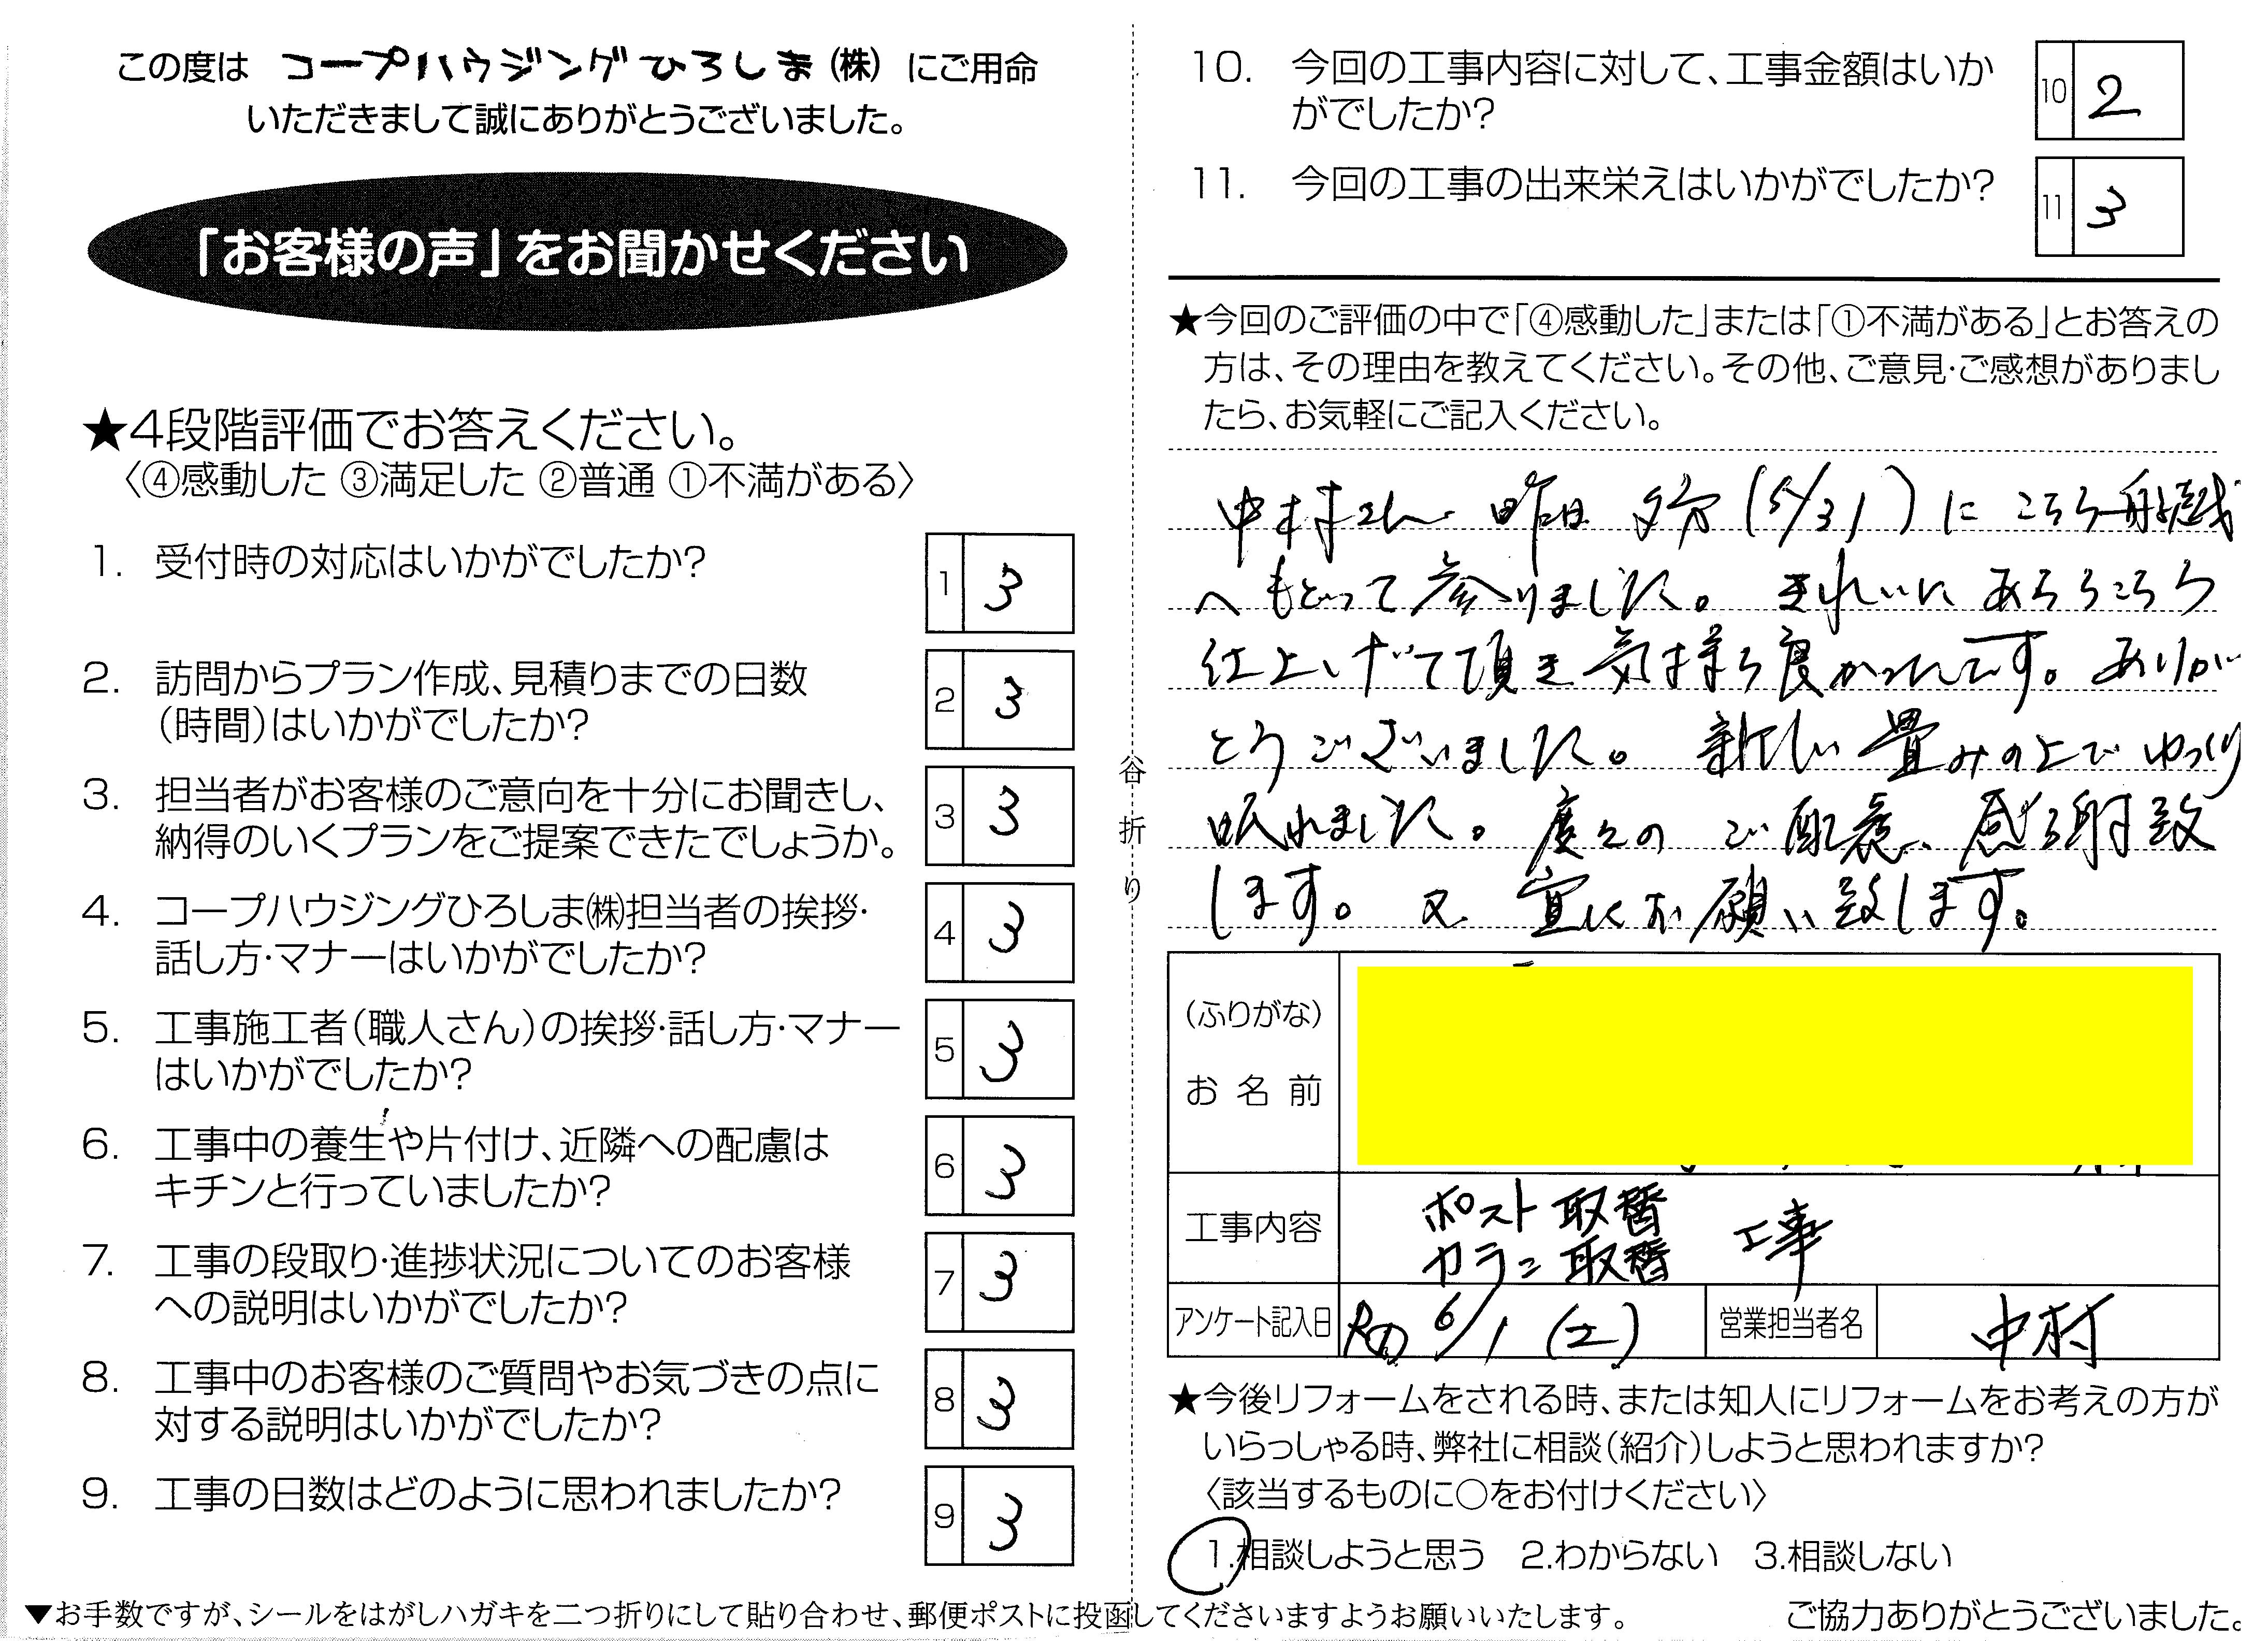 この度は コープハウジングひろしま(株) にご用命
いただきまして誠にありがとうございました。
「お客様の声」をお聞かせください
★4段階評価でお答えください。
〈④感動した ③満足した ②普通 ①不満がある〉
1. 受付時の対応はいかがでしたか?
1 3
2. 訪問からプラン作成、見積りまでの日数
(時間)はいかがでしたか?
2 3
3. 担当者がお客様のご意向を十分にお聞きし、
納得のいくプランをご提案できたでしょうか。
3 3
4. コープハウジングひろしま㈱担当者の挨拶・
話し方・マナーはいかがでしたか?
4 3
5. 工事施工者(職人さん)の挨拶・話し方・マナー
はいかがでしたか?
5 3
6. 工事中の養生や片付け、近隣への配慮は
キチンと行っていましたか?
6 3
7. 工事の段取り・進捗状況についてのお客様
への説明はいかがでしたか?
7 3
8. 工事中のお客様のご質問やお気づきの点に
対する説明はいかがでしたか?
8 3
9. 工事の日数はどのように思われましたか?
9 3
谷折り
10. 今回の工事内容に対して、工事金額はいか
がでしたか?
10 2
11. 今回の工事の出来栄えはいかがでしたか?
11 3
★今回のご評価の中で「④感動した」または「①不満がある」とお答えの
方は、その理由を教えてください。その他、ご意見・ご感想がありまし
たら、お気軽にご記入ください。
中村さん 昨日 夕方(5/31)に こちら船越
へもどって参りました。 きれいに あちらこちら
仕上げて頂き気持ち良かったです。ありが
とうございました。 新しい畳みの上でゆっくり
眠れました。度々の ご配慮、感謝致
します。 又 宜しくお願い致します。
(ふりがな)
お名前
工事内容
ポスト取替
カラン取替 工事
アンケート記入日 6/1(土)
営業担当者名 中村
★今後リフォームをされる時、または知人にリフォームをお考えの方が
いらっしゃる時、弊社に相談(紹介)しようと思われますか?
〈該当するものに○をお付けください〉
1.相談しようと思う 2.わからない 3.相談しない
▼お手数ですが、シールをはがしハガキを二つ折りにして貼り合わせ、郵便ポストに投函してくださいますようお願いいたします。
ご協力ありがとうございました。